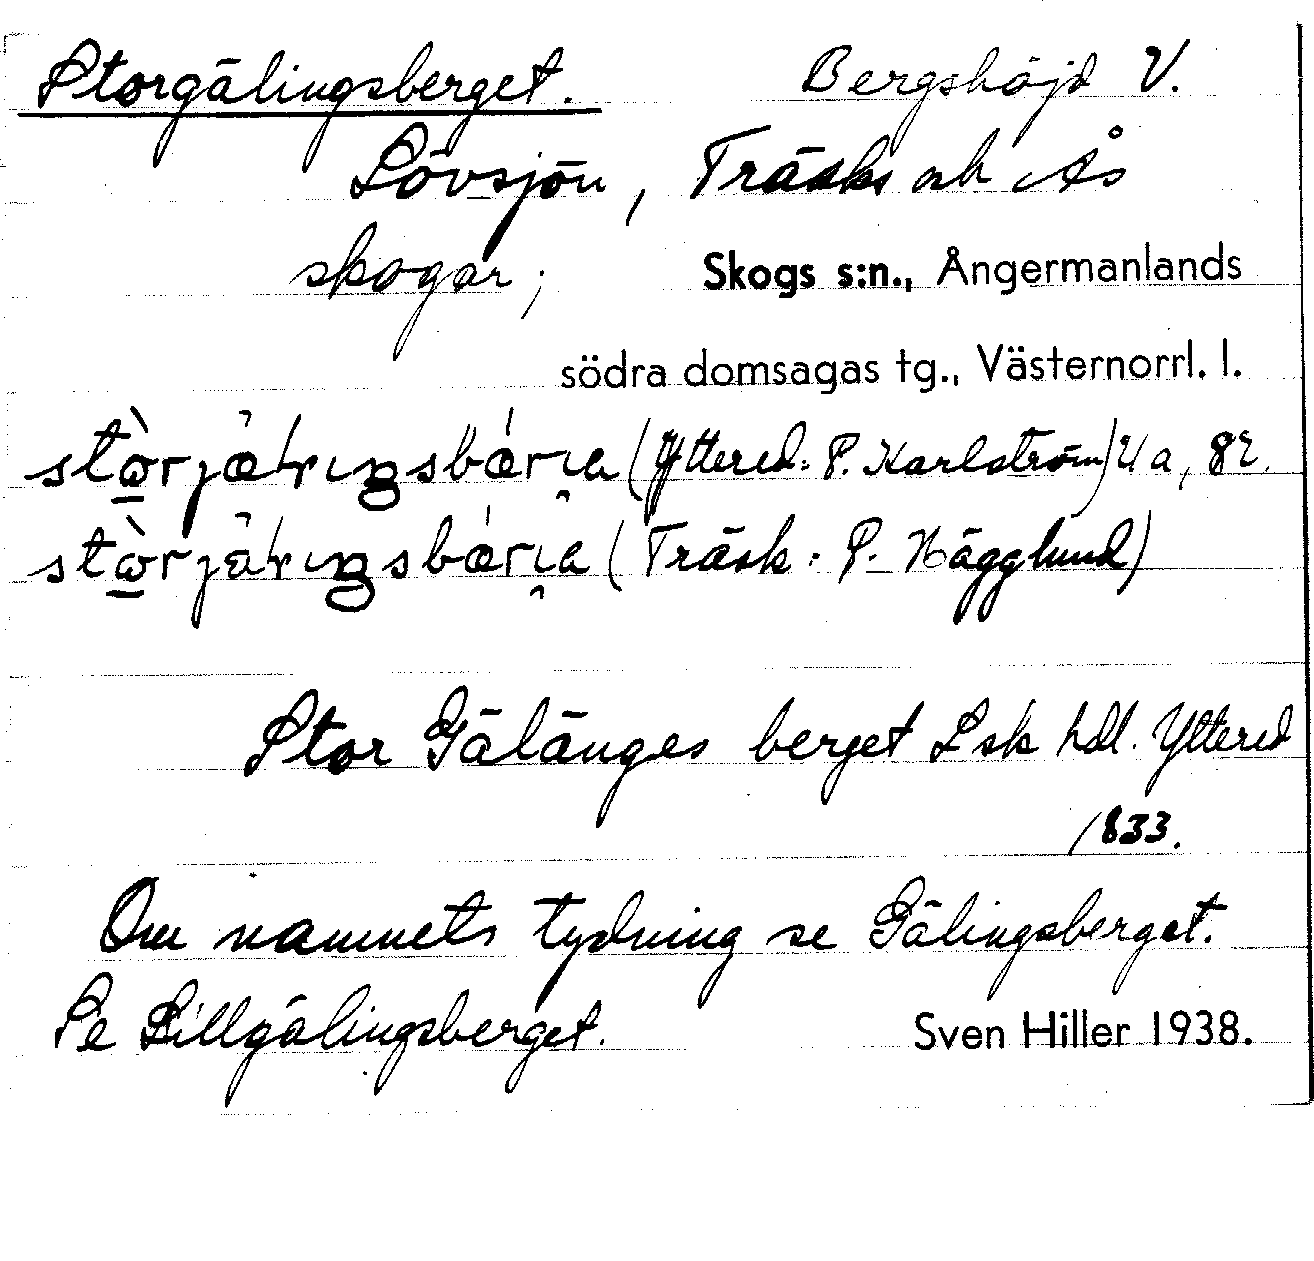 Storgälingsberget. Bergshöjd V.
Lövsjön, Träsks och Ås
skogar; Skogs s:n., Ångermanlands
södra domsagas tg., Västernorrl. l.
(Yttered: P. Karlström)
(Träsk: P. Hägglund)
Stor Gälänges berget Lsk hdl. Yttered
1833.
Om namnets tydning se Gälingsberget.
Se Lillgälingsberget. Sven Hiller 1938.